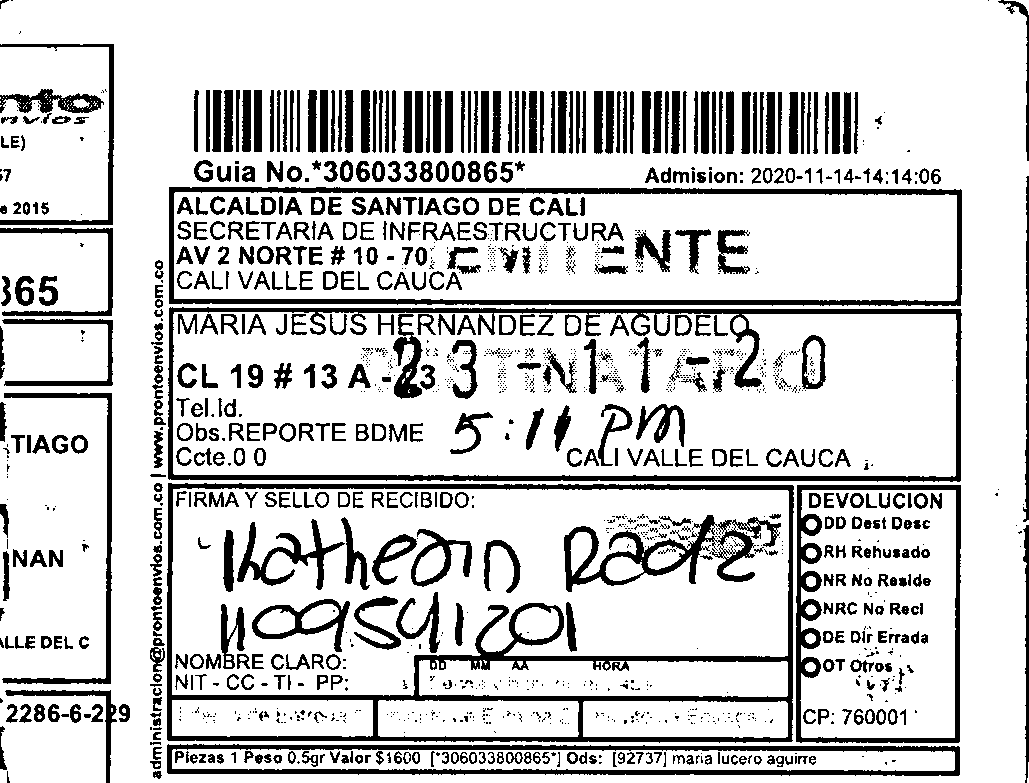 envíos
LE)
57
e 2015
365
TIAGO
NAN
ALLE DEL C
2286-6-229
administracion@prontoenvios.com.co | www.prontoenvios.com.co
Guia No.*306033800865*
Admision: 2020-11-14-14:14:06
ALCALDIA DE SANTIAGO DE CALI
SECRETARIA DE INFRAESTRUCTURA
AV 2 NORTE # 10 - 70
CALI VALLE DEL CAUCA
MARIA JESUS HERNANDEZ DE AGUDELO
DESTINATARIO
23-11-20
CL 19 # 13 A - 23
Tel.Id.
Obs.REPORTE BDME
5:11 PM
Ccte.0 0
CALI VALLE DEL CAUCA
FIRMA Y SELLO DE RECIBIDO:
1109541201
NOMBRE CLARO:
NIT - CC - TI - PP:
DD MM AA HORA
DEVOLUCION
DD Dest Desc
RH Rehusado
NR No Reside
NRC No Recl
DE Dir Errada
OT Otros
CP: 760001
Piezas 1 Peso 0.5gr Valor $1600 [*306033800865*] Ods: [92737] maria lucero aguirre